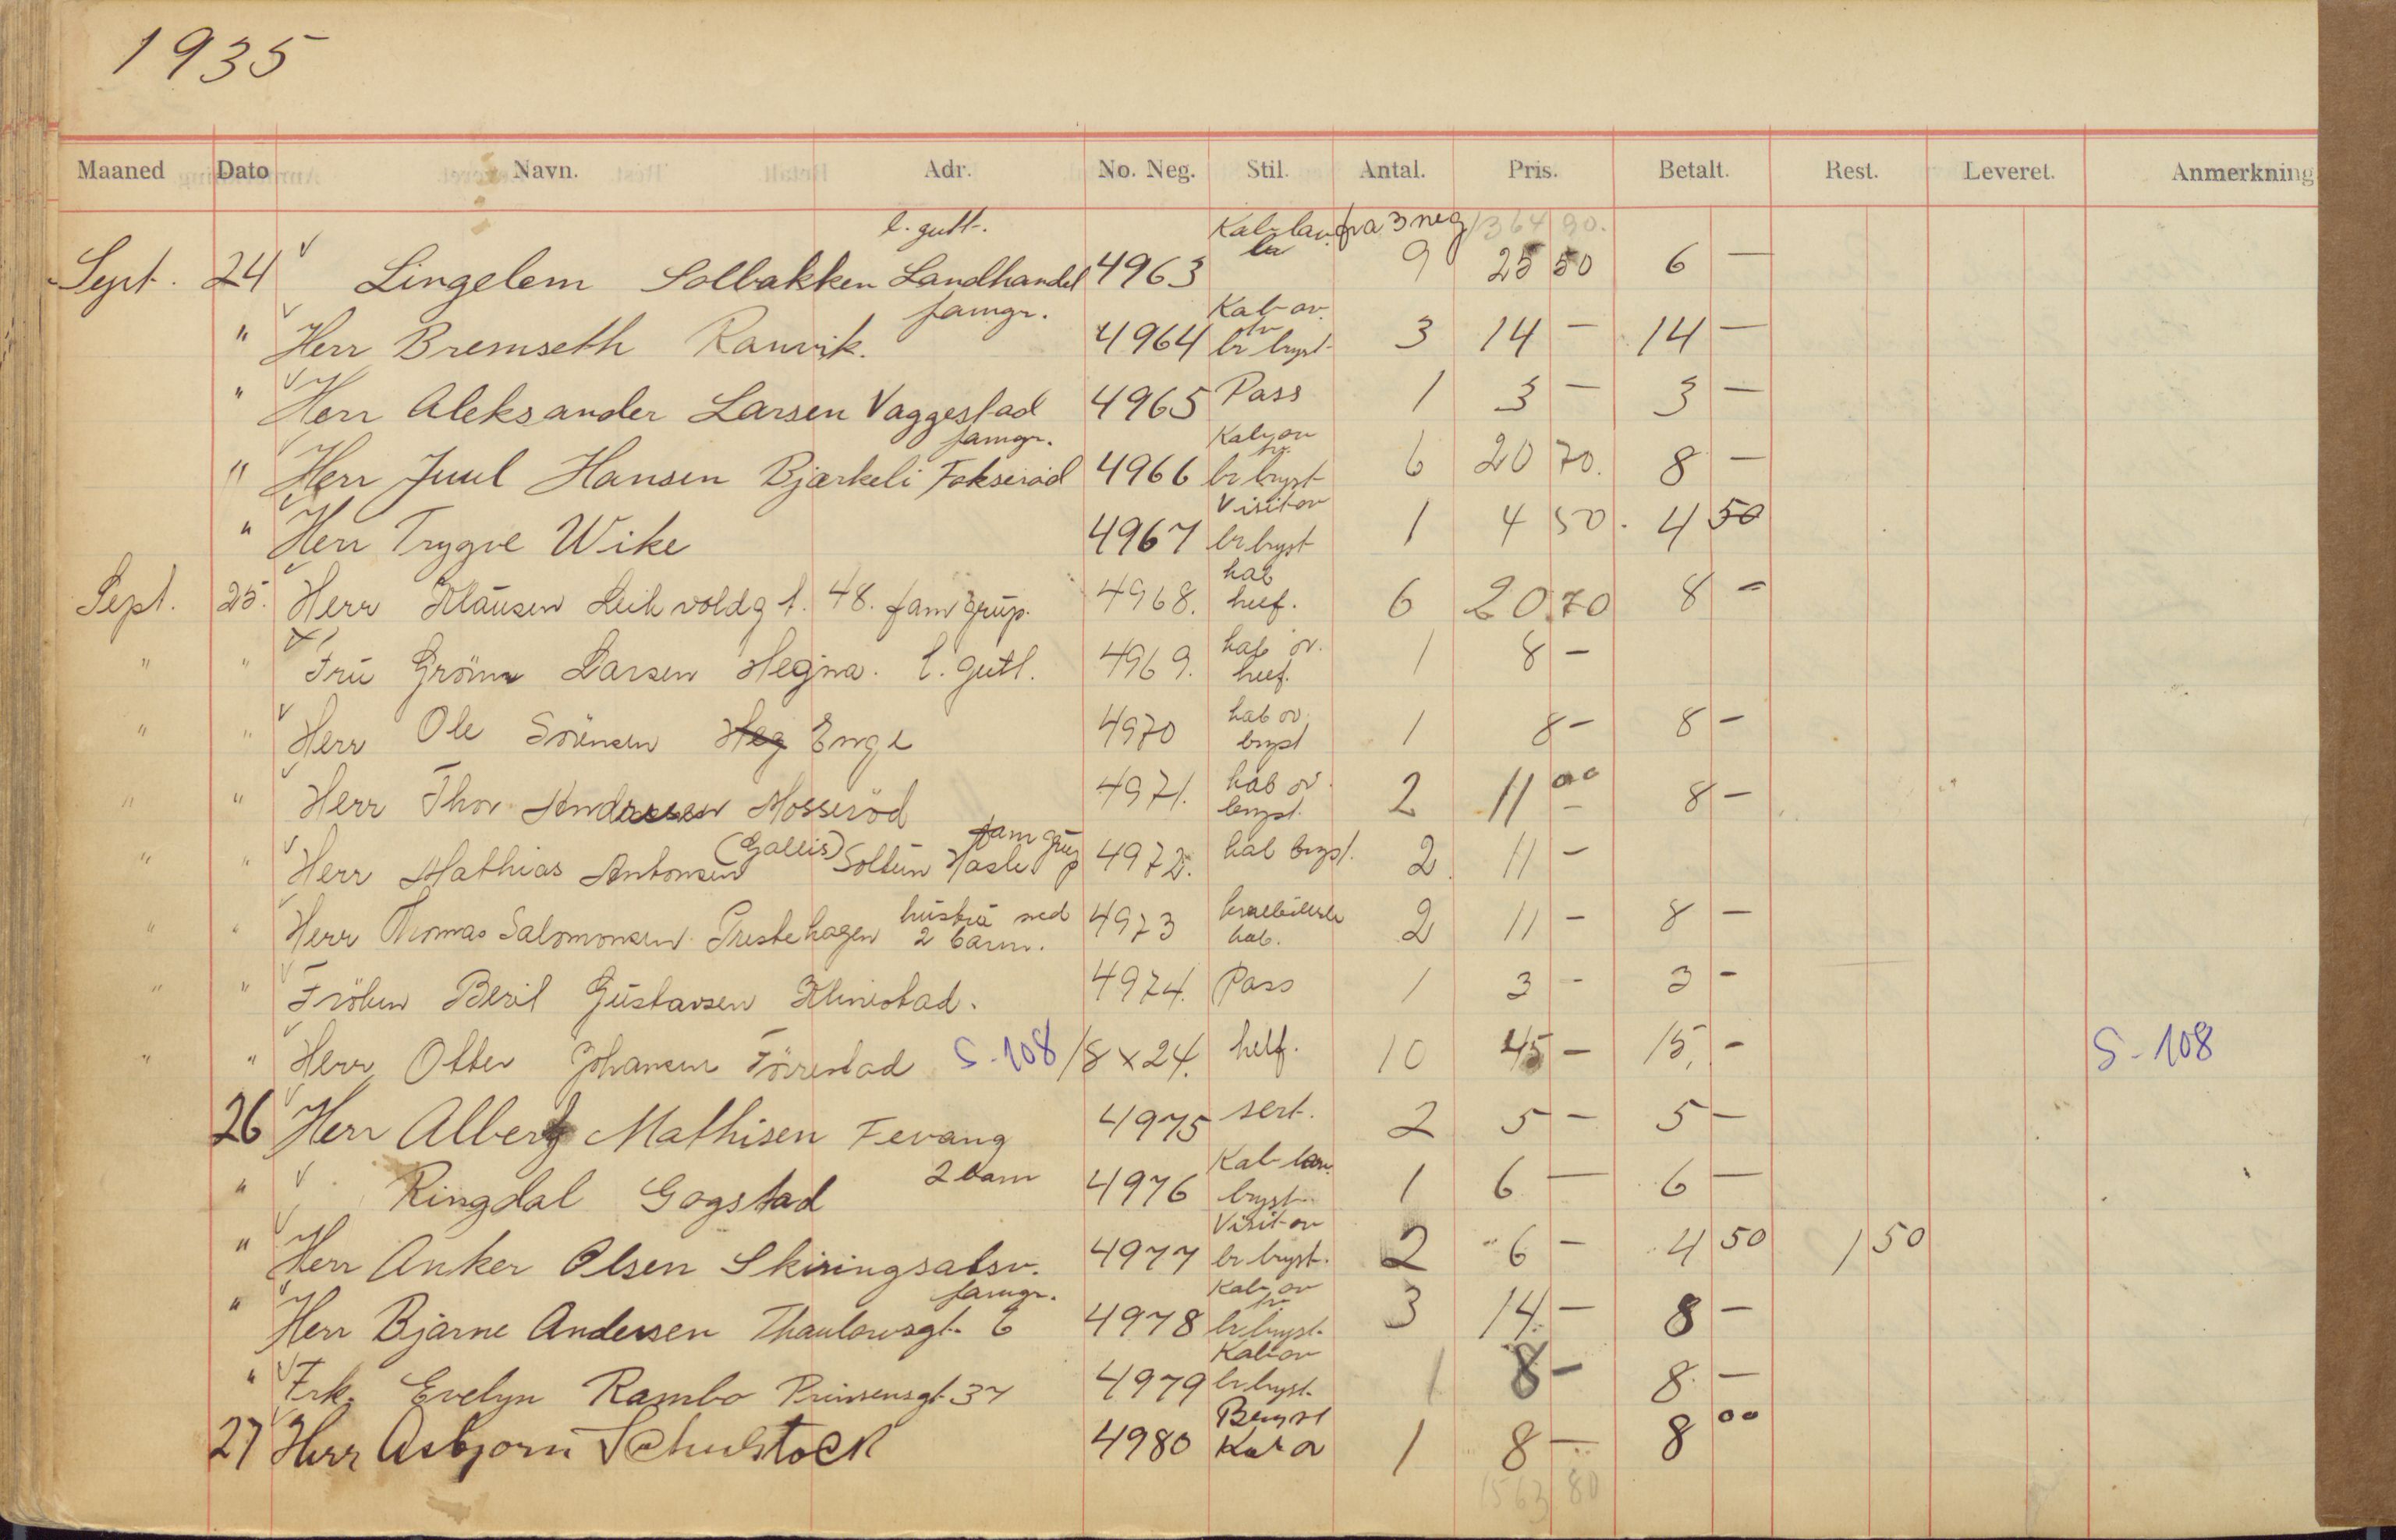 1935
Maaned Dato Navn. Adr. No. Neg. Stil. Antal. Pris. Betalt. Rest. Leveret. Anmerkning
l. gutt. fra 3 neg 1364 90.
Sept. 24 Lingelem Solbakken Landhandel 4963 9 25 50 6 —
famgr. Kab ov.
" Herr Bremseth Ranvik. 4964 br bryst 3 14 — 14 —
" Herr Aleksander Larsen Vaggestad 4965 Pass 1 3 — 3 —
famgr. Kab ov
" Herr Juul Hansen Bjærkeli Fokserød 4966 br bryst 6 20 70. 8 —
Visit ov
" Herr Trygve Wike 4967 br bryst 1 4 50. 4 50
kab
Sept. 25. Herr Klausen Leik voldgt. 48. famgrup. 4968. heef. 6 20 70 8 —
kab ov.
" " Fru Larsen Hegna. l. gutt. 4969. heef. 1 8 —
kab ov.
" " Herr Ole Sörensen Heg Enge 4970 bryst 1 8 — 8 —
kab ov.
" " Herr Thor Andresen Mosseröd 4971. bryst. 2 11 00 8 —
(Gallis) fam grup
" " Herr Mathias Antonsen Soltun Hasle 4972. kab bryst. 2 11 —
hustru med
" " Herr Thomas Salomonsen Prestehagen 2 barn. 4973 kab. 2 11 — 8 —
" " Fröken Beril Gustavsen Klinestad. 4974. Pass 1 3 - 3 -
" " Herr Otter Johansen Törrestad S-108 18 x 24. helf. 10 45 — 15, - S-108
26 Herr Albert Mathisen Fevang 4975 sert. 2 5 — 5 —
2 barn Kab
" Ringdal Gogstad 4976 bryst 1 6 — 6 —
Visit ov
" Herr Anker Olsen Skiringsalsv. 4977 br bryst. 2 6 — 4 50 1 50
famgr. Kab ov
" Herr Bjarne Andersen Thaulowsgt. 6 4978 br bryst. 3 14. — 8 —
Kab ov
" Frk. Evelyn Rambo Prinsensgt. 37 4979 br bryst. 1 8 — 8. —
Bryst
27 Herr Asbjorn Schustock 4980 Kab ov 1 8 — 8 00
1563 80